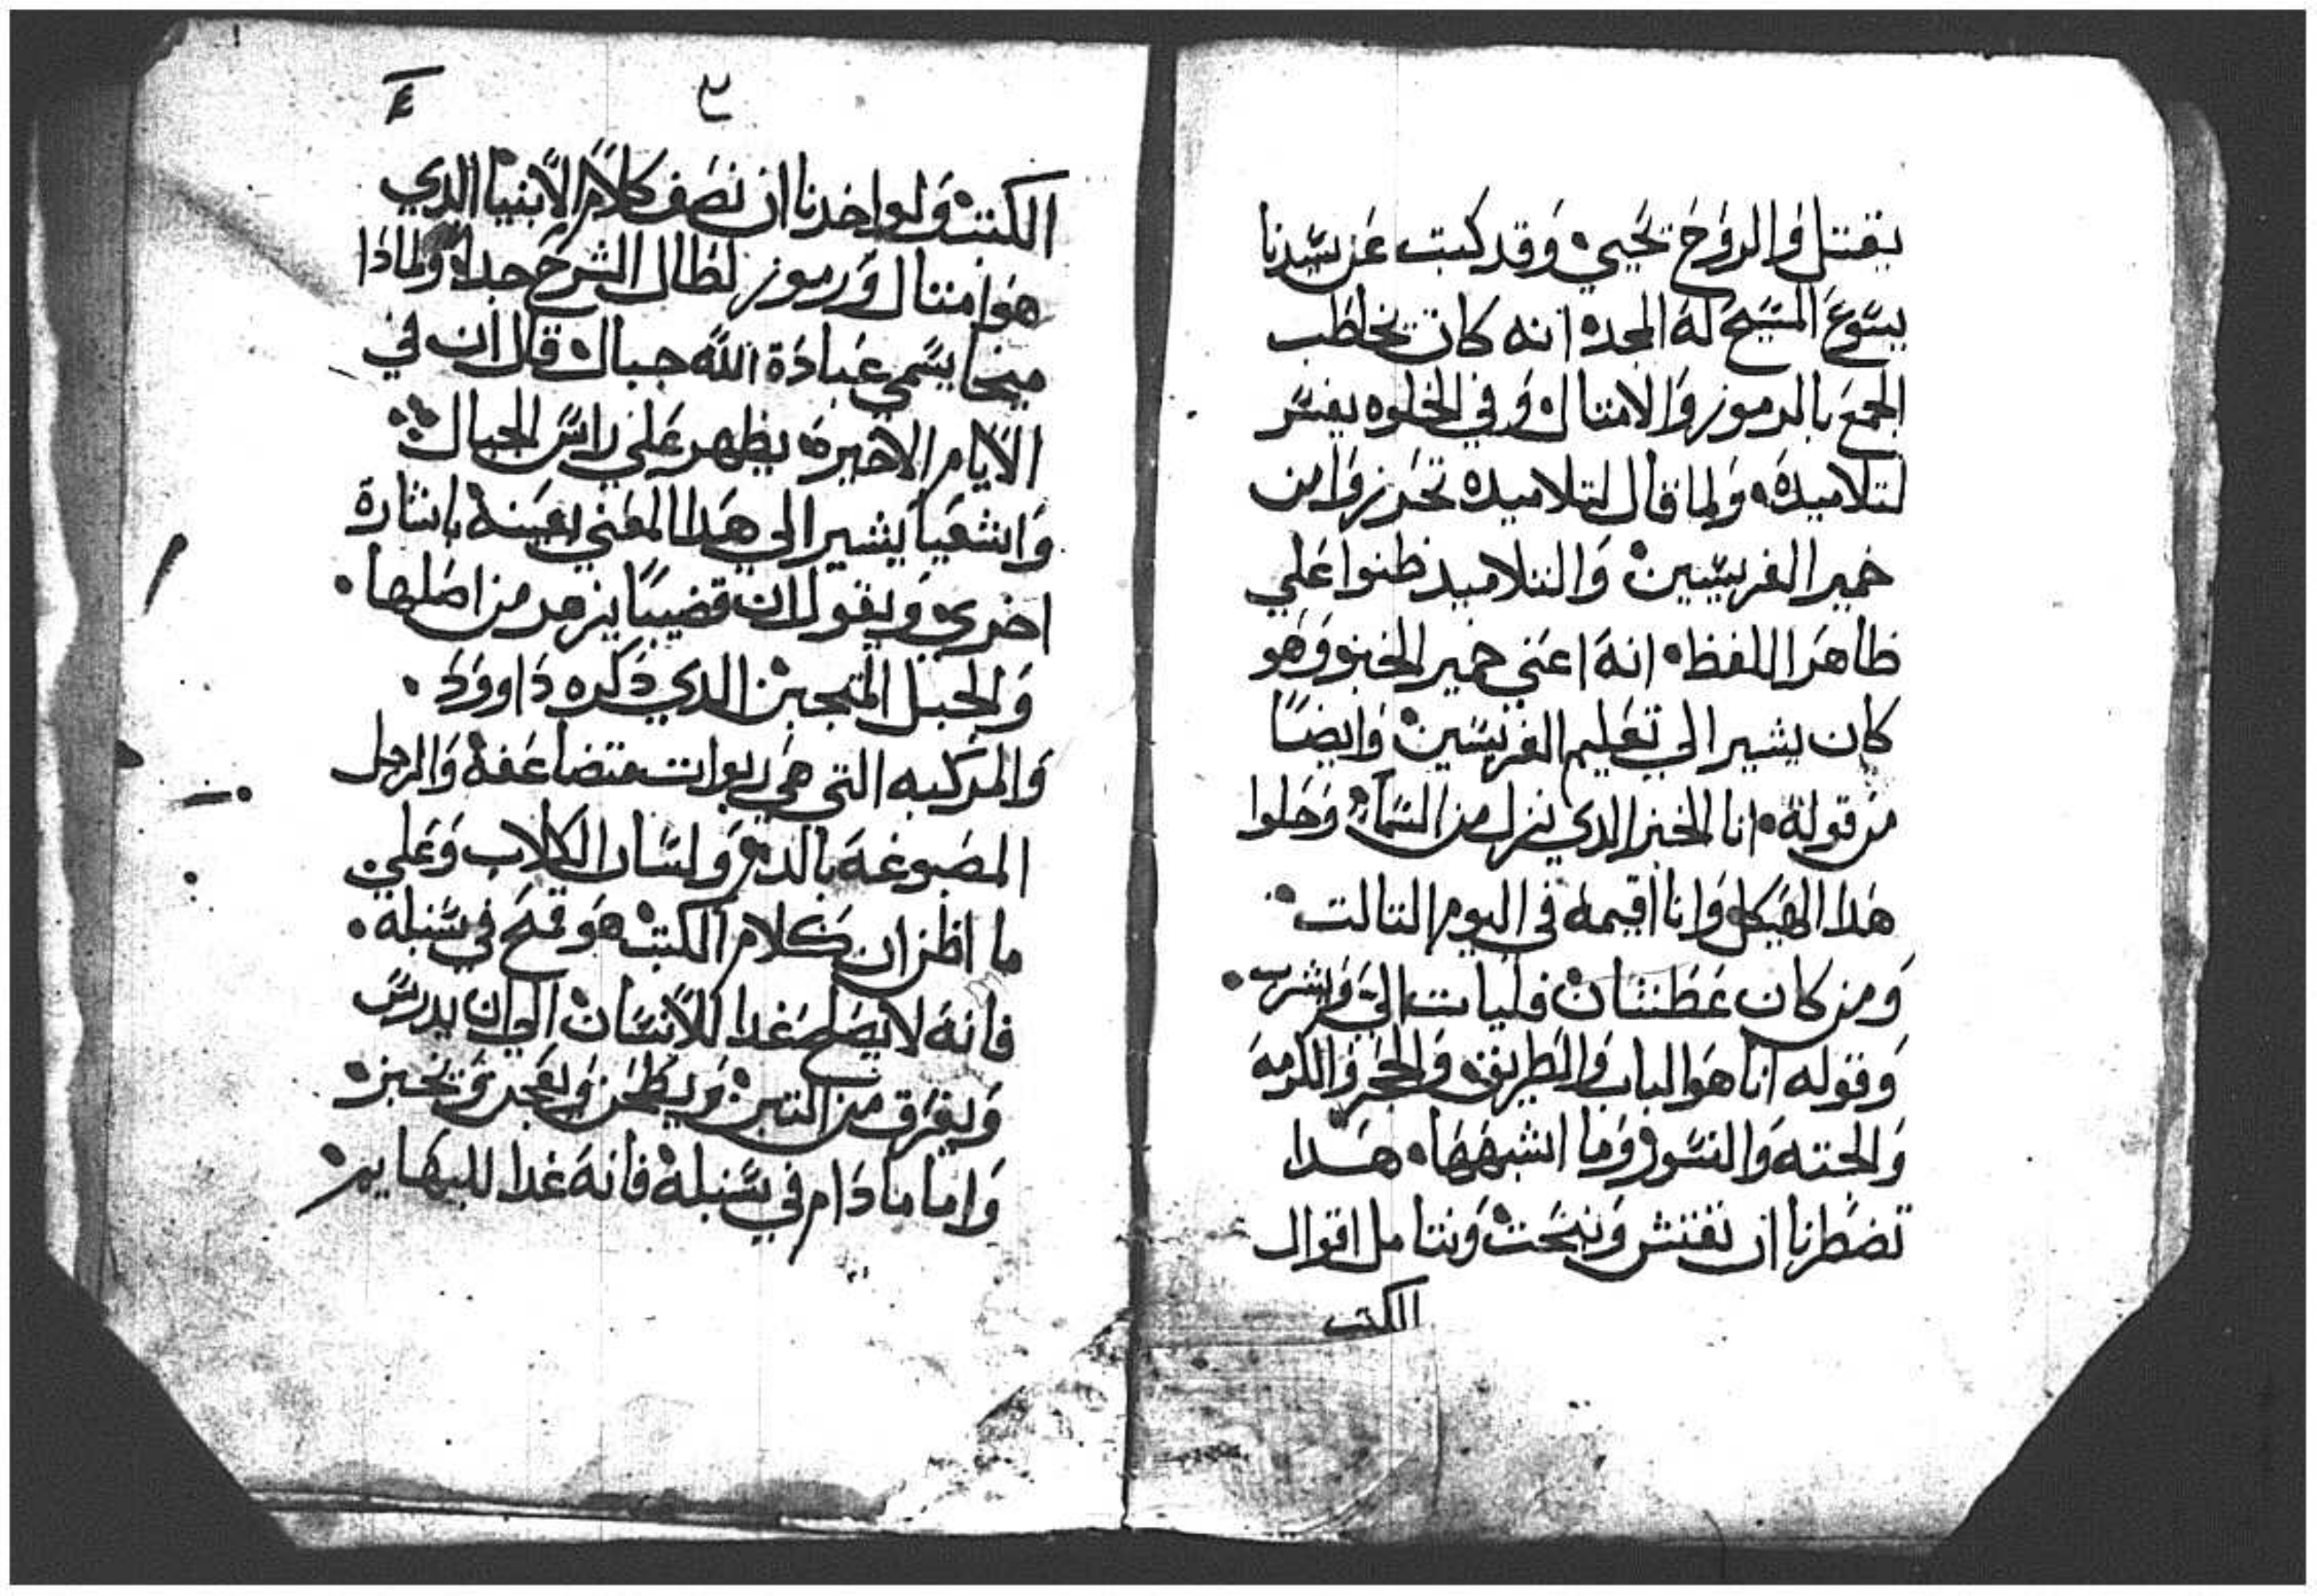 يقتل والروح تحيي وقد كتب عن سيدنا
يسوع المسيح له المجد انه كان يخاطب
الجمع بالرموز والامثال وفي الخلوه يفسر
لتلاميده ولما قال لتلاميده تحرزوا من
خمير الفريسيين والتلاميد ظنوا علي
ظاهر اللفظ انه اعني خمير الخبز وهو
كان يشير الي تعليم الفريسين وايضًا
من قوله انا الخبز الدي نزل من السماء وحلوا
هدا الهيكل وانا اقيمه في اليوم التالت
ومن كان عطشان فليات الي ويشرب
وقوله انا هو الباب والطريق والحجر والكرمه
والحته والنسور وما اشبهها هدا
تضطرنا ان نفتش ونبحت ونتامل اقوال
الكتب
٣
٤
الكتب ولو اخدنا ان نصف كلام الانبيا الدي
هو امتال ورموز لطال الشرح جدا ولمادا
ميخا يسمي عبادة الله جبال قال ان في
الايام الاخيرة يظهر علي راس الجبال
واشعيا يشير الي هدا المعني بعينه باشارة
اخري ويقول ان قضيبًا يزهر من اصلها
والجبل المتجبن الدي دكره داوود
والمركبه التي هي ربوات متضاعفة والرجل
المصبوغة بالدم ولسان الكلاب وعلي
ما اظن ان كلام الكتب هو قمح في سنبله
فانه لا يصلح غدا للانسان الي ان يدرس
ويفرق من التبن ويطحن ويعجن ويخبز
واما مادام في سنبله فانه غدا للبهايم